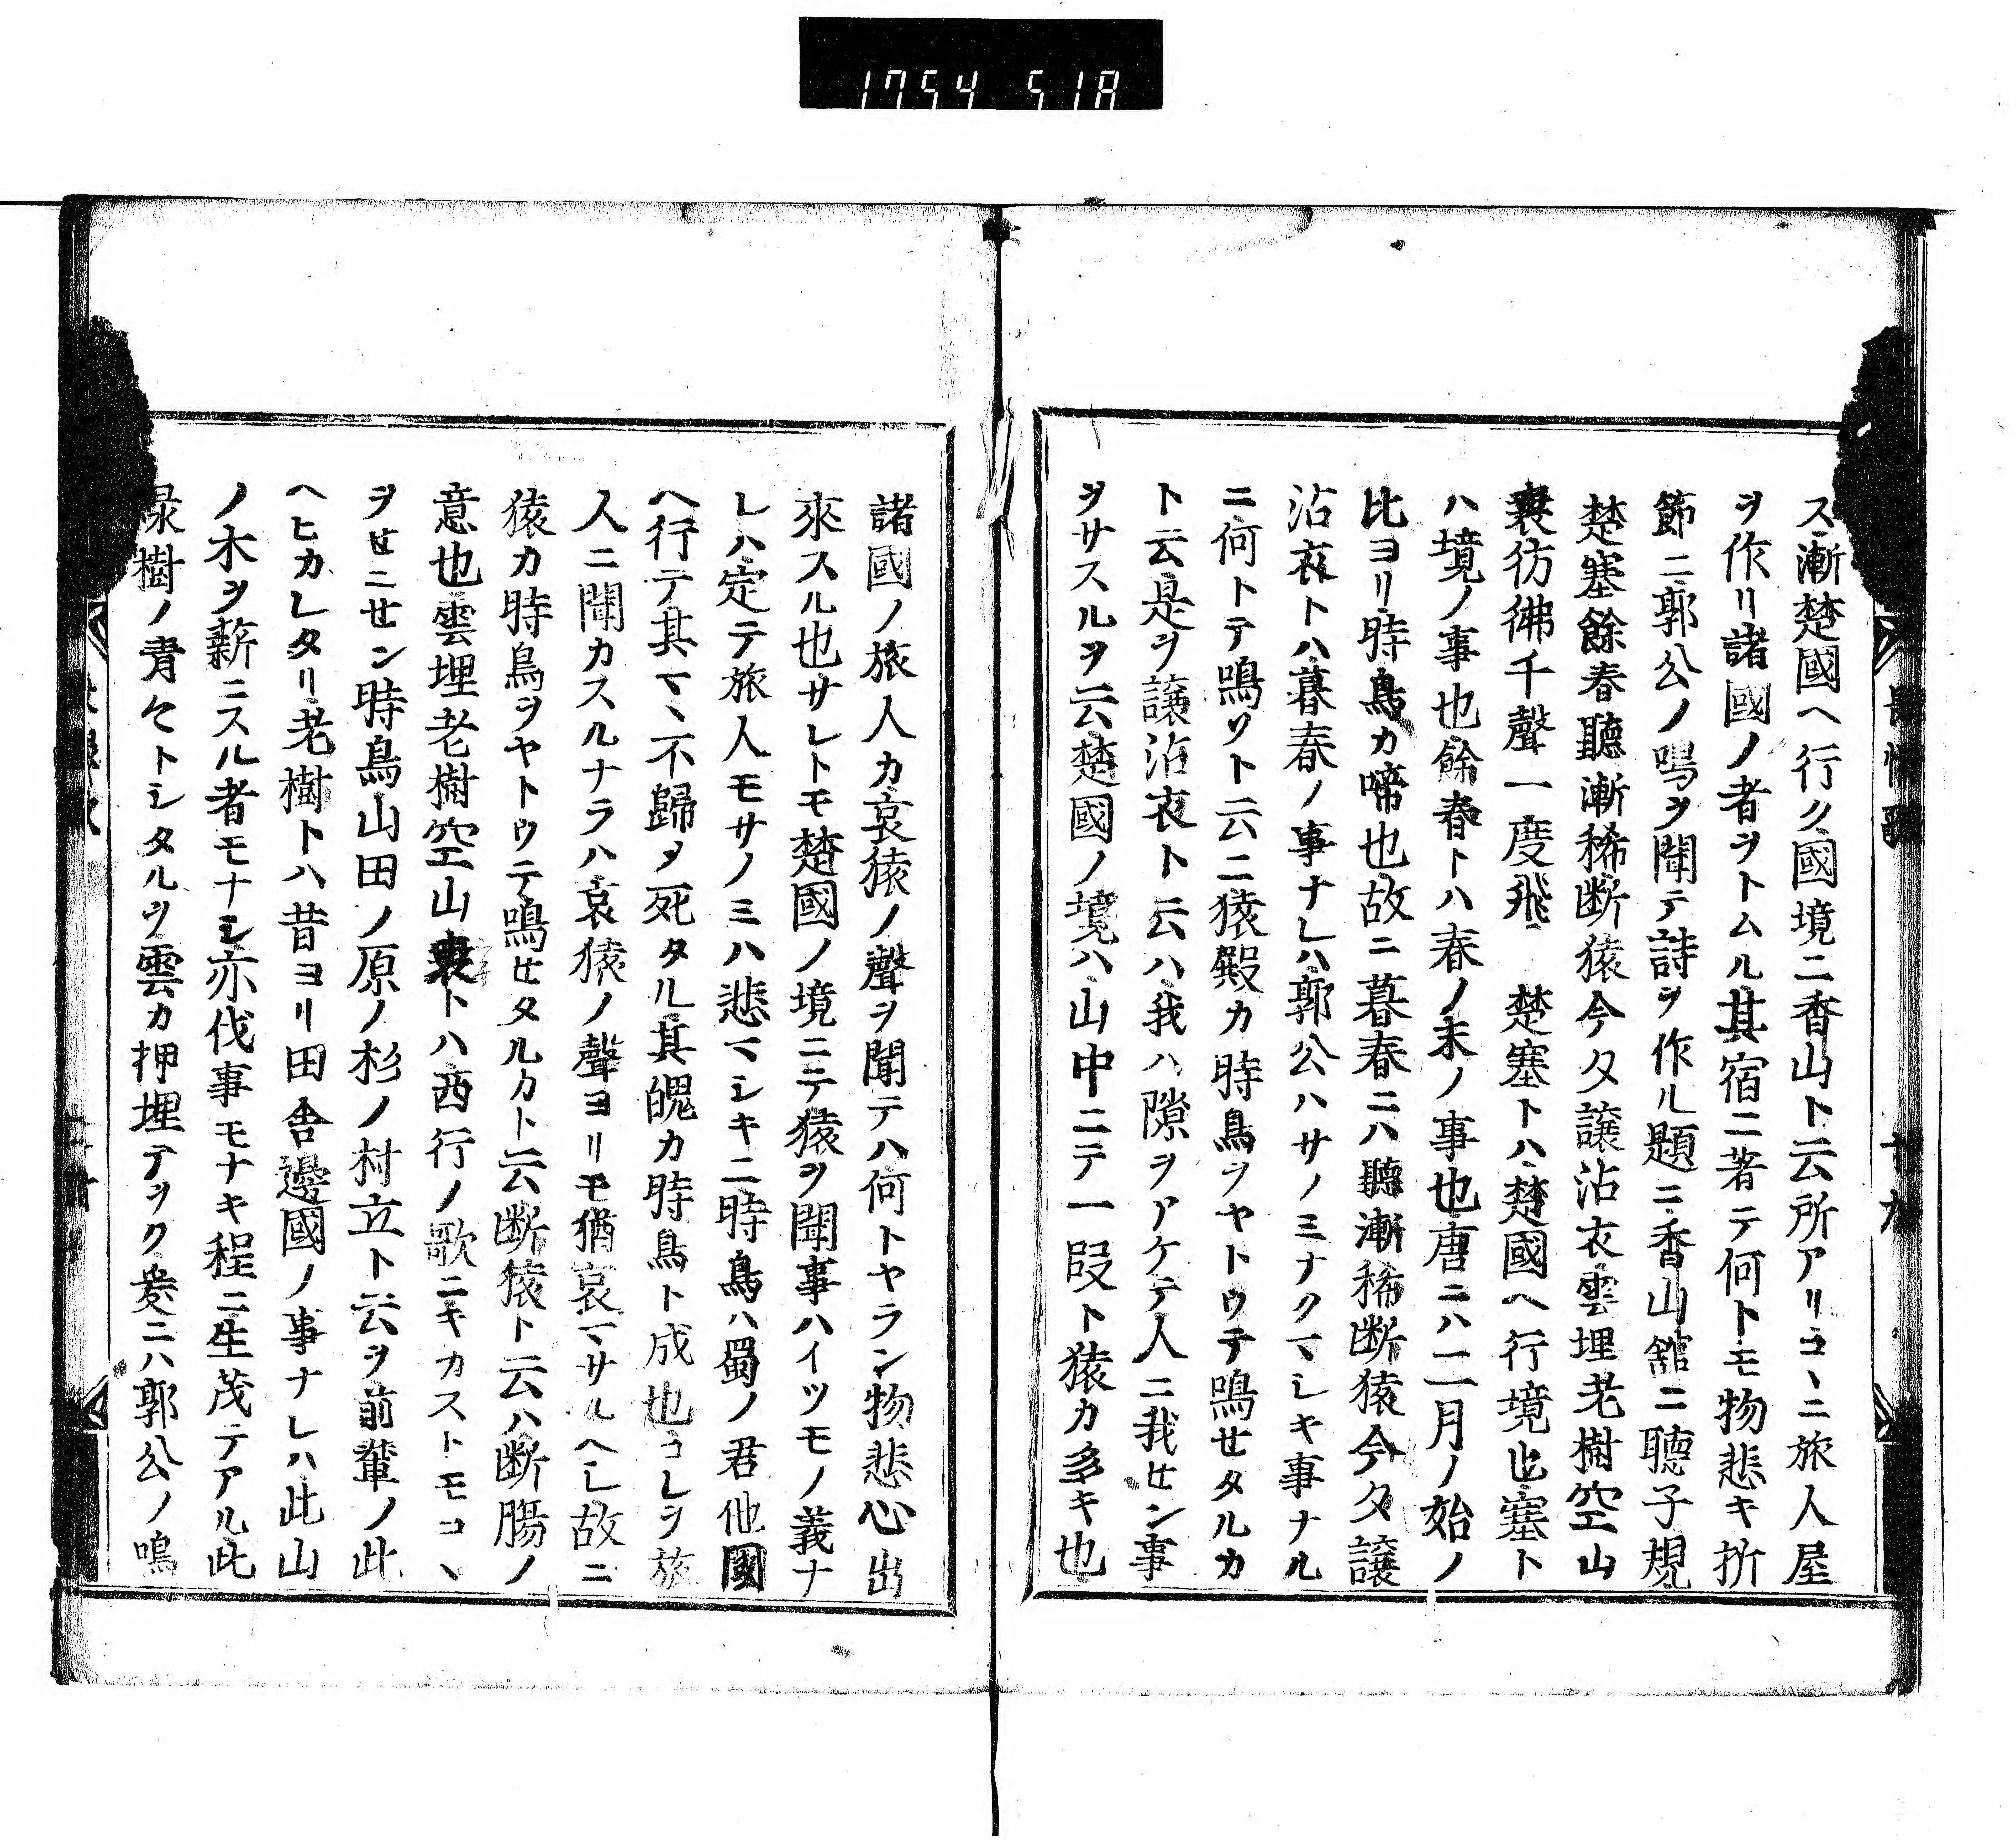 1754 518
ス漸楚國ヘ行ク國境ニ香山ト云所アリコヽニ旅人屋
ヲ作リ諸國ノ者ヲトムル其宿ニ著テ何トモ物悲キ折
節ニ郭公ノ鳴ヲ聞テ詩ヲ作ル題ニ香山舘ニ聽子規
楚塞餘春聽漸稀断猿今夕譲沾衣雲埋老樹空山
裏彷彿千聲一度飛　楚塞トハ楚國ヘ行境也塞ト
ハ境ノ事也餘春トハ春ノ末ノ事也唐ニハ二月ノ始ノ
比ヨリ時鳥カ啼也故ニ暮春ニハ聽漸稀断猿今夕譲
沾衣トハ暮春ノ事ナレハ郭公ハサノミナクマシキ事ナル
ニ何トテ鳴ソト云ニ猿殿カ時鳥ヲヤトウテ鳴セタルカ
ト云是ヲ譲沾衣ト云ハ我ハ隙ヲアケテ人ニ我セン事
ヲサスルヲ云楚國ノ境ハ山中ニテ一段ト猿カ多キ也
諸國ノ旅人カ哀猿ノ聲ヲ聞テハ何トヤラン物悲心出
來スル也サレトモ楚國ノ境ニテ猿ヲ聞事ハイツモノ義ナ
レハ定テ旅人モサノミハ悲マシキニ時鳥ハ蜀ノ君他國
ヘ行テ其マヽ不歸メ死タル其魄カ時鳥ト成也コレヲ旅
人ニ聞カスルナラハ哀猿ノ聲ヨリモ猶哀マサルヘシ故ニ
猿カ時鳥ヲヤトウテ鳴セタルカト云断猿ト云ハ断腸ノ
意也雲埋老樹空山裏トハ西行ノ歌ニキカストモコヽ
ヲセニセン時鳥山田ノ原ノ杉ノ村立ト云ヲ前輩ノ此
ヘヒカレタリ老樹トハ昔ヨリ田舎邊國ノ事ナレハ此山
ノ木ヲ薪ニスル者モナシ亦伐事モナキ程ニ生茂テアル此
緑樹ノ青々トシタルヲ雲カ押埋テヲク爰ニハ郭公ノ鳴